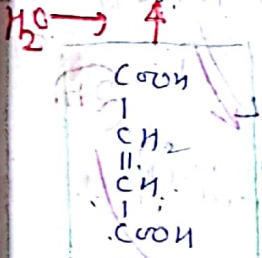 H₂O →
COOH
|
CH₂
||
CH
|
COOH